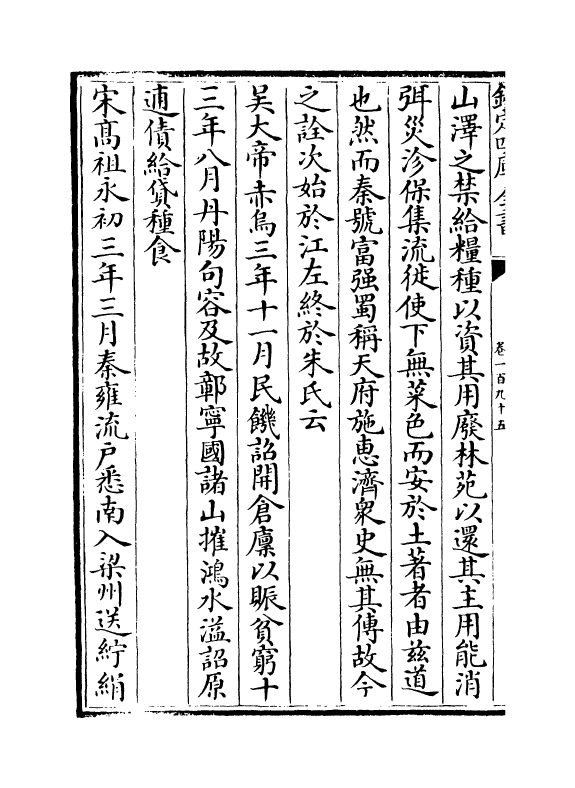 欽定四庫全書
卷一百九十五
山澤之禁給糧種以資其用廢林苑以還其主用能消
弭災沴保集流徙使下無菜色而安於土著者由兹道
也然而秦號富强蜀稱天府施惠濟衆史無其傳故今
之詮次始於江左終於朱氏云
吴大帝赤烏三年十一月民饑詔開倉廩以賑貧窮十
三年八月丹陽句容及故鄣寧國諸山摧鴻水溢詔原
逋債給貸種食
宋髙祖永初三年三月秦雍流户悉南入梁州送紵絹